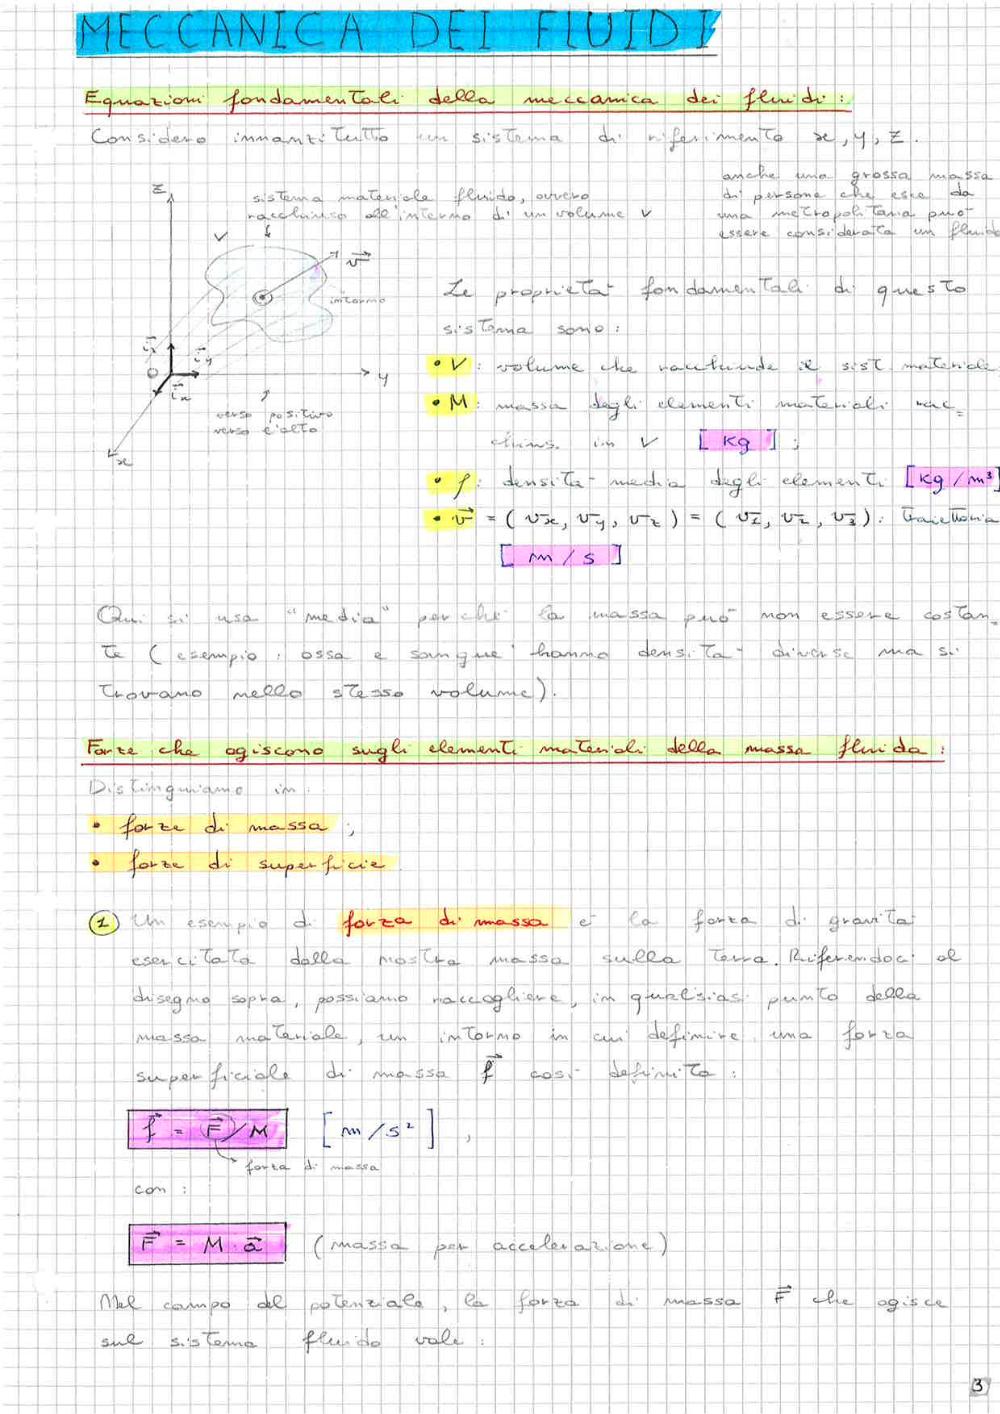 MECCANICA DEI FLUIDI
Equazioni fondamentali della meccanica dei fluidi:
Considero innanzitutto un sistema di riferimento x, y, z.
anche una grossa massa
di persone che esce da
una metropolitana può
essere considerata un fluido
sistema materiale fluido, ovvero
racchiuso all'interno di un volume V
z
V
v⃗
intorno
i⃗z
i⃗y
O
i⃗x
y
x
verso positivo
verso l'alto
Le proprietà fondamentali di questo
sistema sono:
• V: volume che racchiude il sist. materiale
• M: massa degli elementi materiali rac=
chius. in V [kg];
• ρ: densità media degli elementi [kg/m³]
• v⃗ = (vx, vy, vz) = (v1, v2, v3): traiettoria
[m/s]
Qui si usa "media" perché la massa può non essere costan=
te (esempio: ossa e sangue hanno densità diverse ma si
trovano nello stesso volume).
Forze che agiscono sugli elementi materiali della massa fluida:
Distinguiamo in:
• forze di massa;
• forze di superficie
1 Un esempio di forza di massa è la forza di gravità
esercitata dalla nostra massa sulla terra. Riferendoci al
disegno sopra, possiamo raccogliere, in qualsiasi punto della
massa materiale, un intorno in cui definire una forza
superficiale di massa f⃗ così definita:
f⃗ = F⃗/M [m/s²],
forza di massa
con:
F⃗ = M · a⃗ (massa per accelerazione)
Nel campo del potenziale, la forza di massa F⃗ che agisce
sul sistema fluido vale:
3